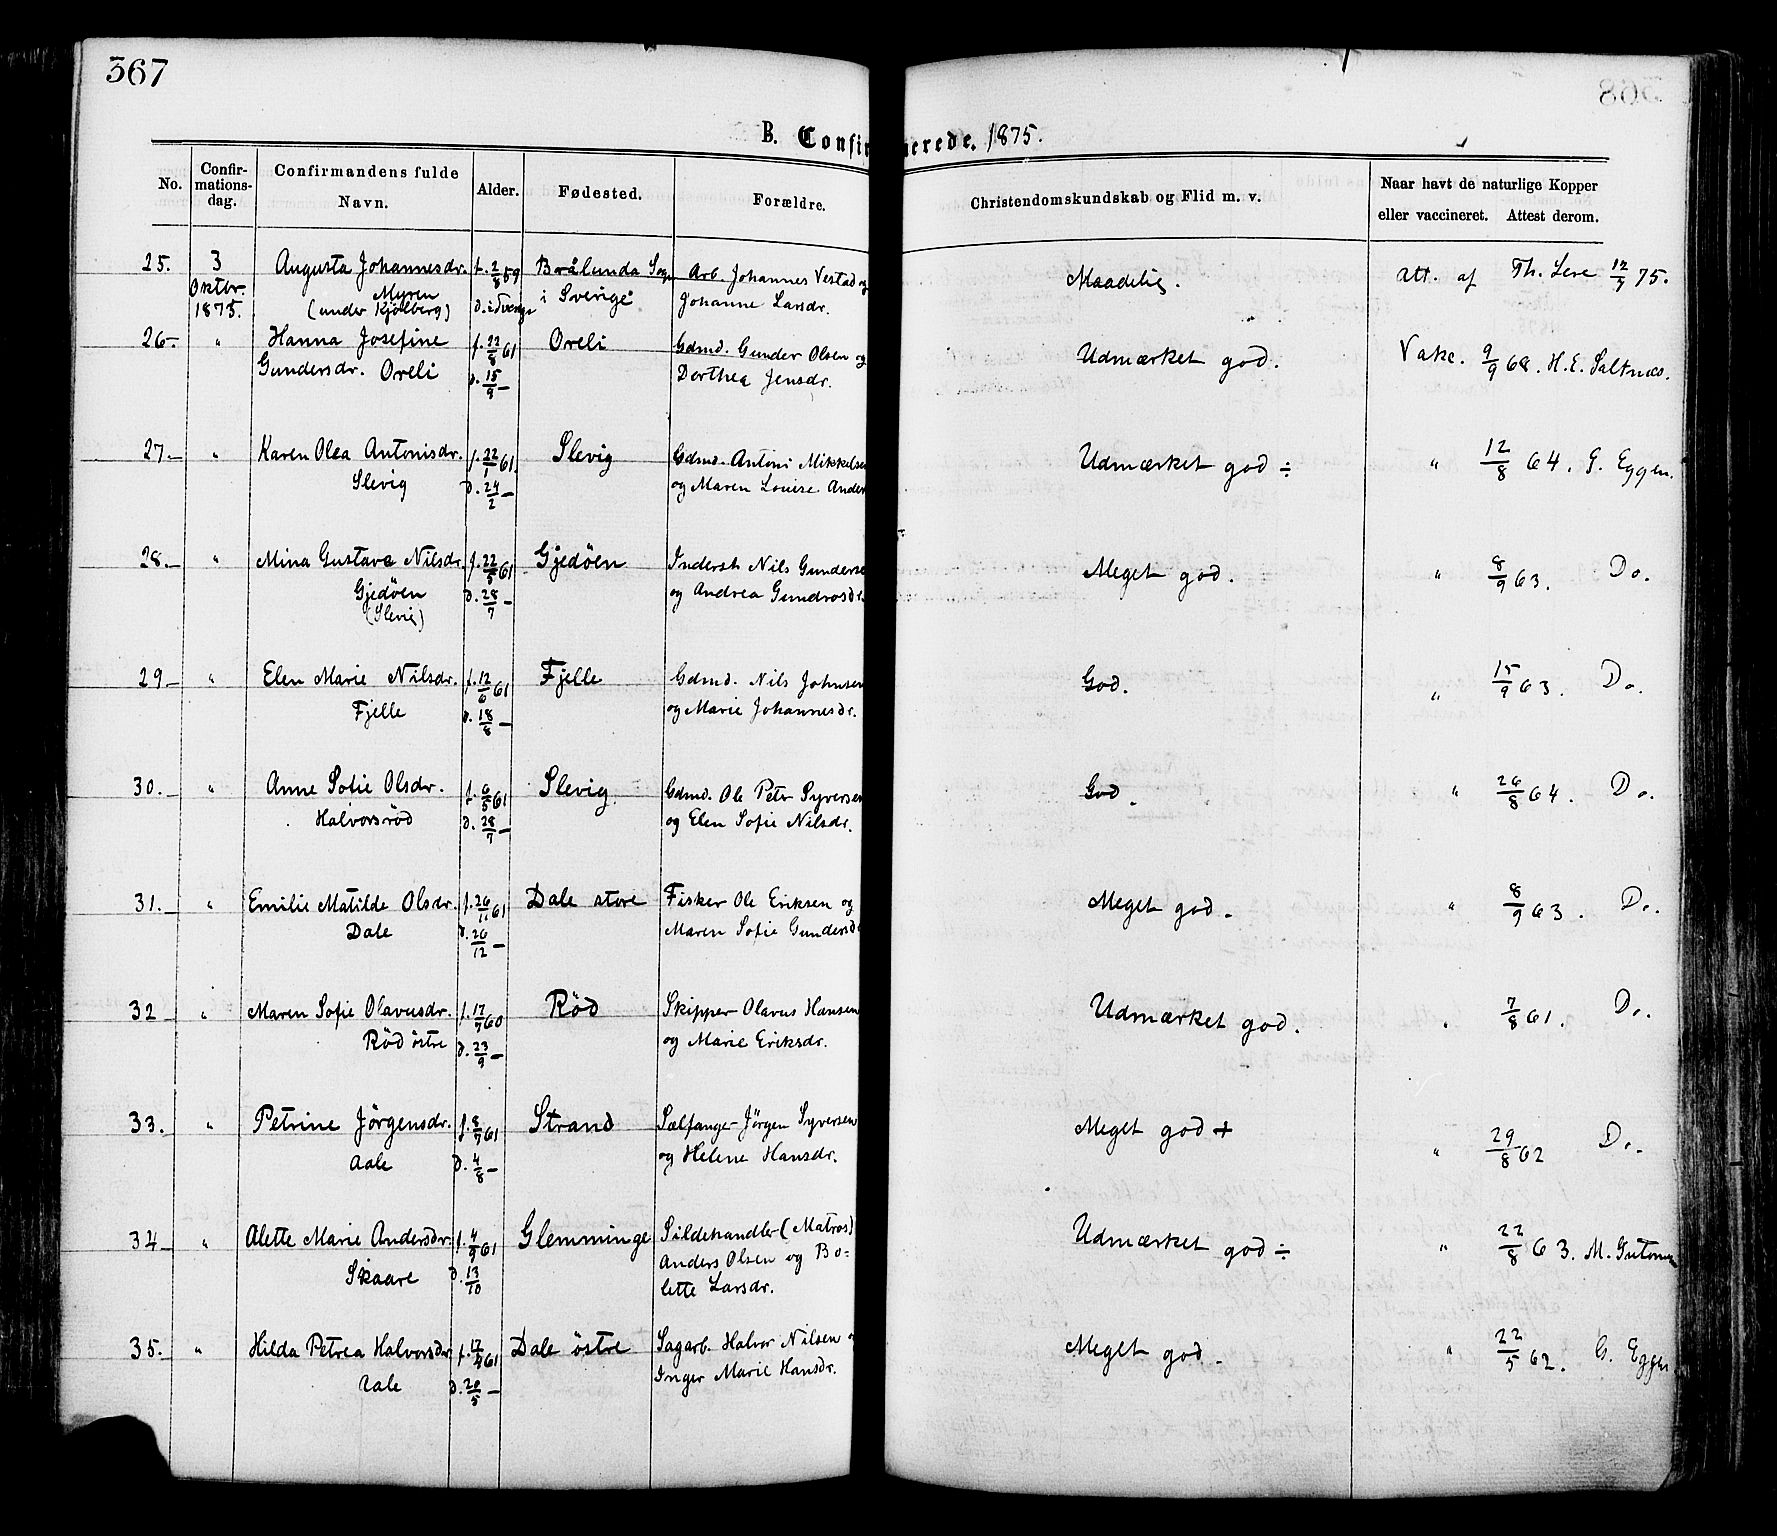 367
B. Confirmerede. 1875.
No.
Confir-
mations-
dag.
Confirmandens fulde
Navn.
Alder.
Fødested.
Forældre.
Christendomskundskab og Flid m. v.
Naar havt de naturlige Kopper
eller vaccineret. Attest derom.
25. 3 Augusta Johannesdr. f. 2/8 59 Brålunda Sogn Arb. Johannes Vestad og Maadelig. Att. af Th. Lere 12/7 75.
Oktbr. Myren i Sverige Johanne Larsdr.
1875. (under Kjölberg) d. i Sverige
26. " Hanna Josefine f. 22/8 61 Oreli Gdmd. Gunder Olsen og Udmærket god. Vakc. 9/9 68. H. E. Saltnæs.
Gundersdr. Oreli d. 15/9 — Dorthea Jensdr.
27. " Karen Olea Antonisdr. f. 22/1 61. Slevig Gdmd. Antoni Mikkelsen Udmærket god ÷ " 12/8 64. G. Eggen.
Slevig d. 24/2 — og Maren Louise Ander
28. " Mina Gustava Nilsdr. f. 22/5 61 Gjedöen Inderst Nils Gunderse Meget god. " 8/9 63. Do.
Gjedöen d. 28/7 — og Andrea Gundrosdr.
(Slevig)
29 " Elen Marie Nilsdr. f. 12/6 61 Fjelle Gdmd. Nils Johnsen God. " 15/9 63. Do.
Fjelle d. 18/8 — og Marie Johannesdr.
30. " Anne Sofie Olsdr. f. 6/5 61 Slevig Gdmd. Ole Petr Syversen God. " 26/8 64. Do.
Halvorsröd d. 28/7 — og Elen Sofie Nilsdr.
31. " Emilie Matilde Olsdr. f. 26/11 61 Dale store Fisker Ole Eriksen og Meget god. " 8/9 63. Do.
Dale d. 26/12 — Maren Sofie Gundersd
32 " Maren Sofie Olavusdr. f. 17/7 60 Röd Skipper Olavus Hansen Udmærket god. " 7/8 61. Do.
Röd östre d. 23/9 — og Marie Eriksdr.
33. " Petrine Jörgensdr. f. 8/7 61 Strand Sælfanger Jörgen Syversen Meget god + " 29/8 62 Do.
Aale d. 4/8 — og Helene Hansdr.
34 " Alette Marie Andersdr. f. 4/9 61 Glemminge Sildehandler (Matros) Udmærket god ÷ " 22/8 63. M.
Skaare d. 13/10 Anders Olsen og Bo-
lette Larsdr.
35. " Hilda Petrea Halvorsdr. f. 12/4 61 Dale östre Sagarb. Halvor Nilsen o Meget god. " 22/5 62. G. Eggen
Aale d. 20/5 — Inger Marie Hansdr.